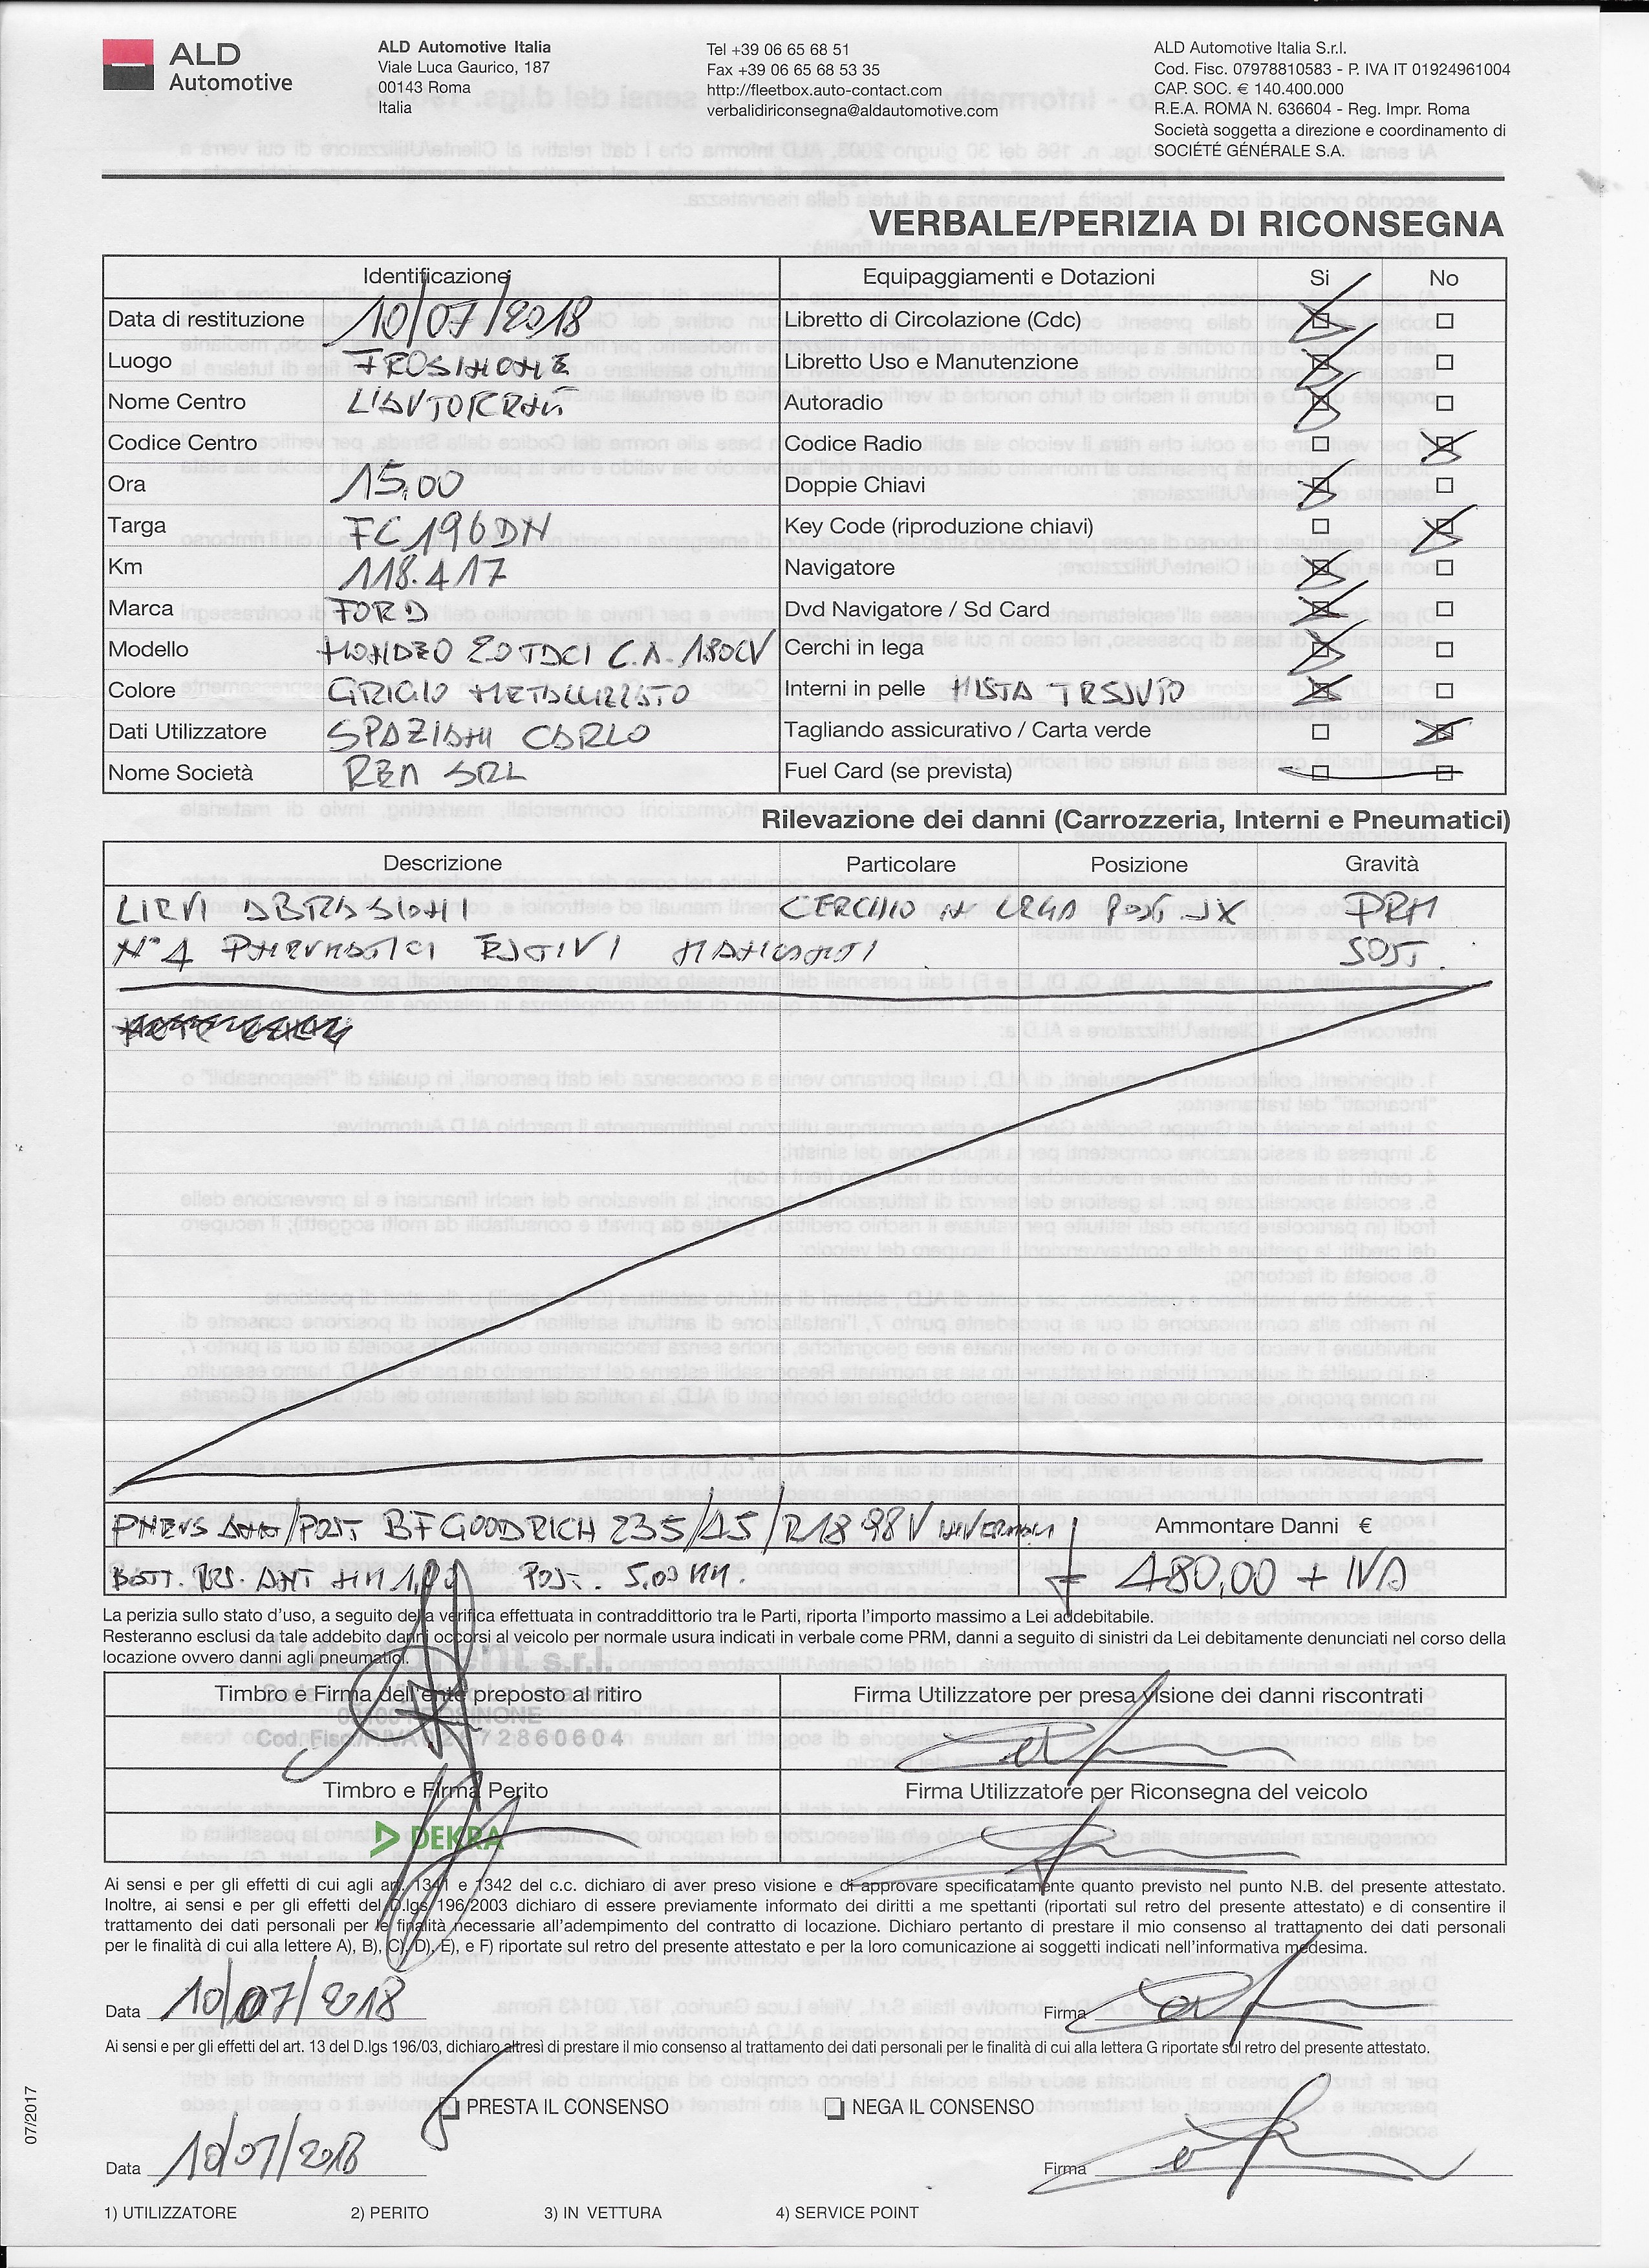 ALD Automotive
ALD Automotive Italia
Viale Luca Gaurico, 187
00143 Roma
Italia
Tel +39 06 65 68 51
Fax +39 06 65 68 53 35
http://fleetbox.auto-contact.com
verbalidiriconsegna@aldautomotive.com
ALD Automotive Italia S.r.l.
Cod. Fisc. 07978810583 - P. IVA IT 01924961004
CAP. SOC. € 140.400.000
R.E.A. ROMA N. 636604 - Reg. Impr. Roma
Società soggetta a direzione e coordinamento di
SOCIÉTÉ GÉNÉRALE S.A.
VERBALE/PERIZIA DI RICONSEGNA
Identificazione Equipaggiamenti e Dotazioni Si No
Data di restituzione 10/07/2018 Libretto di Circolazione (Cdc)
Luogo FROSINONE Libretto Uso e Manutenzione
Nome Centro L'AUTORENT Autoradio
Codice Centro Codice Radio
Ora 15,00 Doppie Chiavi
Targa FC196DN Key Code (riproduzione chiavi)
Km 118.417 Navigatore
Marca FORD Dvd Navigatore / Sd Card
Modello MONDEO 20 TDCI C.A. 180CV Cerchi in lega
Colore GRIGIO METALLIZZATO Interni in pelle MISTA TESSUTO
Dati Utilizzatore SPAZIANI CARLO Tagliando assicurativo / Carta verde
Nome Società REA SRL Fuel Card (se prevista)
Rilevazione dei danni (Carrozzeria, Interni e Pneumatici)
Descrizione Particolare Posizione Gravità
LIEVI ABRASIONI CERCHIO IN LEGA POST SX PRM
N°4 PNEUMATICI ESTIVI MANCANTI SOST.
PNEUS ANT/POST BF GOODRICH 235/45/R18 98V INVERNALI Ammontare Danni €
BATT. RES. ANT MM POST. 5,00 MM. 480,00 + IVA
La perizia sullo stato d'uso, a seguito della verifica effettuata in contraddittorio tra le Parti, riporta l'importo massimo a Lei addebitabile.
Resteranno esclusi da tale addebito danni occorsi al veicolo per normale usura indicati in verbale come PRM, danni a seguito di sinistri da Lei debitamente denunciati nel corso della
locazione ovvero danni agli pneumatici.
L'Autorent s.r.l.
Timbro e Firma dell'ente preposto al ritiro Firma Utilizzatore per presa visione dei danni riscontrati
Timbro e Firma Perito Firma Utilizzatore per Riconsegna del veicolo
DEKRA
Ai sensi e per gli effetti di cui agli art. 1341 e 1342 del c.c. dichiaro di aver preso visione e di approvare specificatamente quanto previsto nel punto N.B. del presente attestato.
Inoltre, ai sensi e per gli effetti del D.lgs 196/2003 dichiaro di essere previamente informato dei diritti a me spettanti (riportati sul retro del presente attestato) e di consentire il
trattamento dei dati personali per le finalità necessarie all'adempimento del contratto di locazione. Dichiaro pertanto di prestare il mio consenso al trattamento dei dati personali
per le finalità di cui alla lettere A), B), C), D), E), e F) riportate sul retro del presente attestato e per la loro comunicazione ai soggetti indicati nell'informativa medesima.
Data 10/07/2018 Firma
Ai sensi e per gli effetti del art. 13 del D.lgs 196/03, dichiaro altresì di prestare il mio consenso al trattamento dei dati personali per le finalità di cui alla lettera G riportate sul retro del presente attestato.
PRESTA IL CONSENSO NEGA IL CONSENSO
Data 10/07/2018 Firma
1) UTILIZZATORE 2) PERITO 3) IN VETTURA 4) SERVICE POINT
07/2017